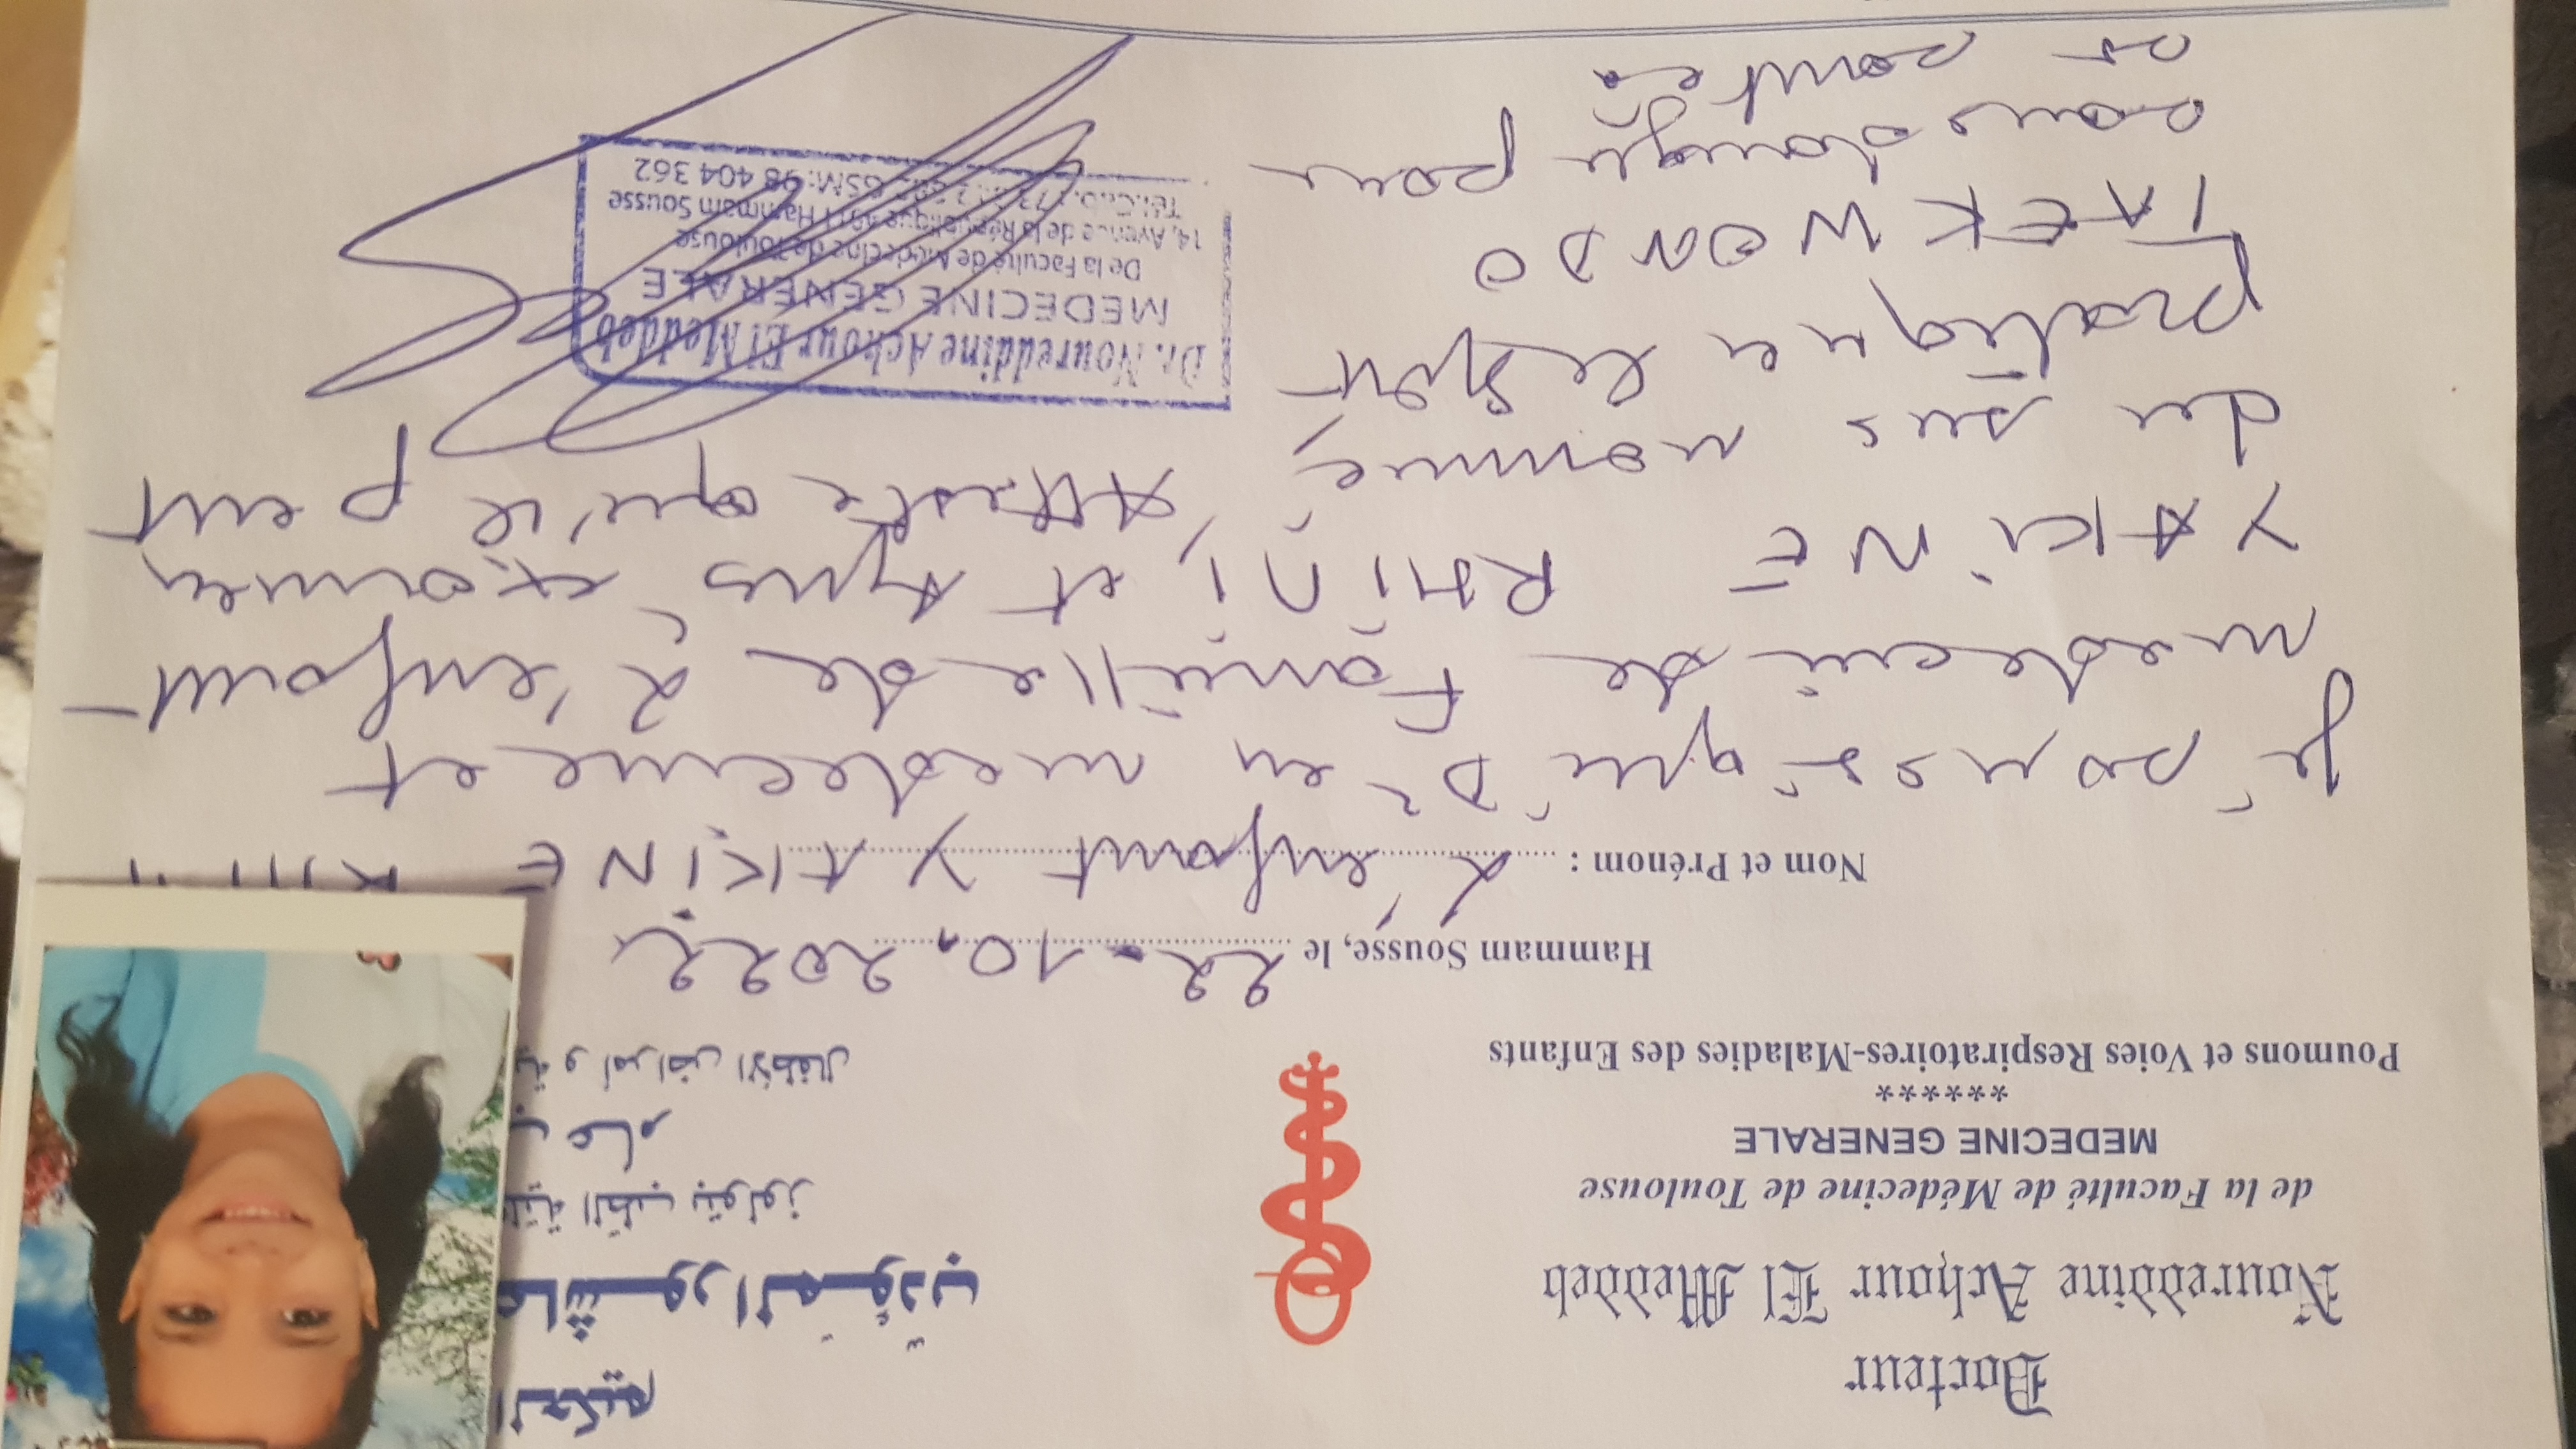 Docteur
Noureddine Achour El Meddeb
de la Faculté de Médecine de Toulouse
MEDECINE GENERALE
******
Poumons et Voies Respiratoires-Maladies des Enfants
الحكيم
عاشور المؤدّب
الطب بتولوز
عام
و أمراض الأطفال
Hammam Sousse, le 22.10.2022
Nom et Prénom : L'enfant YAKINE
Je soussigné Dr en medecine et
medecin de Famille de L'enfant
YAKINE RMINI, et Après examen
du sus nommé, Atteste qu'il peut
pratiquer le sport
TAEKWONDO
sans danger pour
sa santé
Dr. Noureddine Achour El Meddeb
MEDECINE GENERALE
De la Faculté de Médecine de Toulouse
14, Avenue de la République 4011 Hammam Sousse
Tél.Cab. GSM: 98 404 362